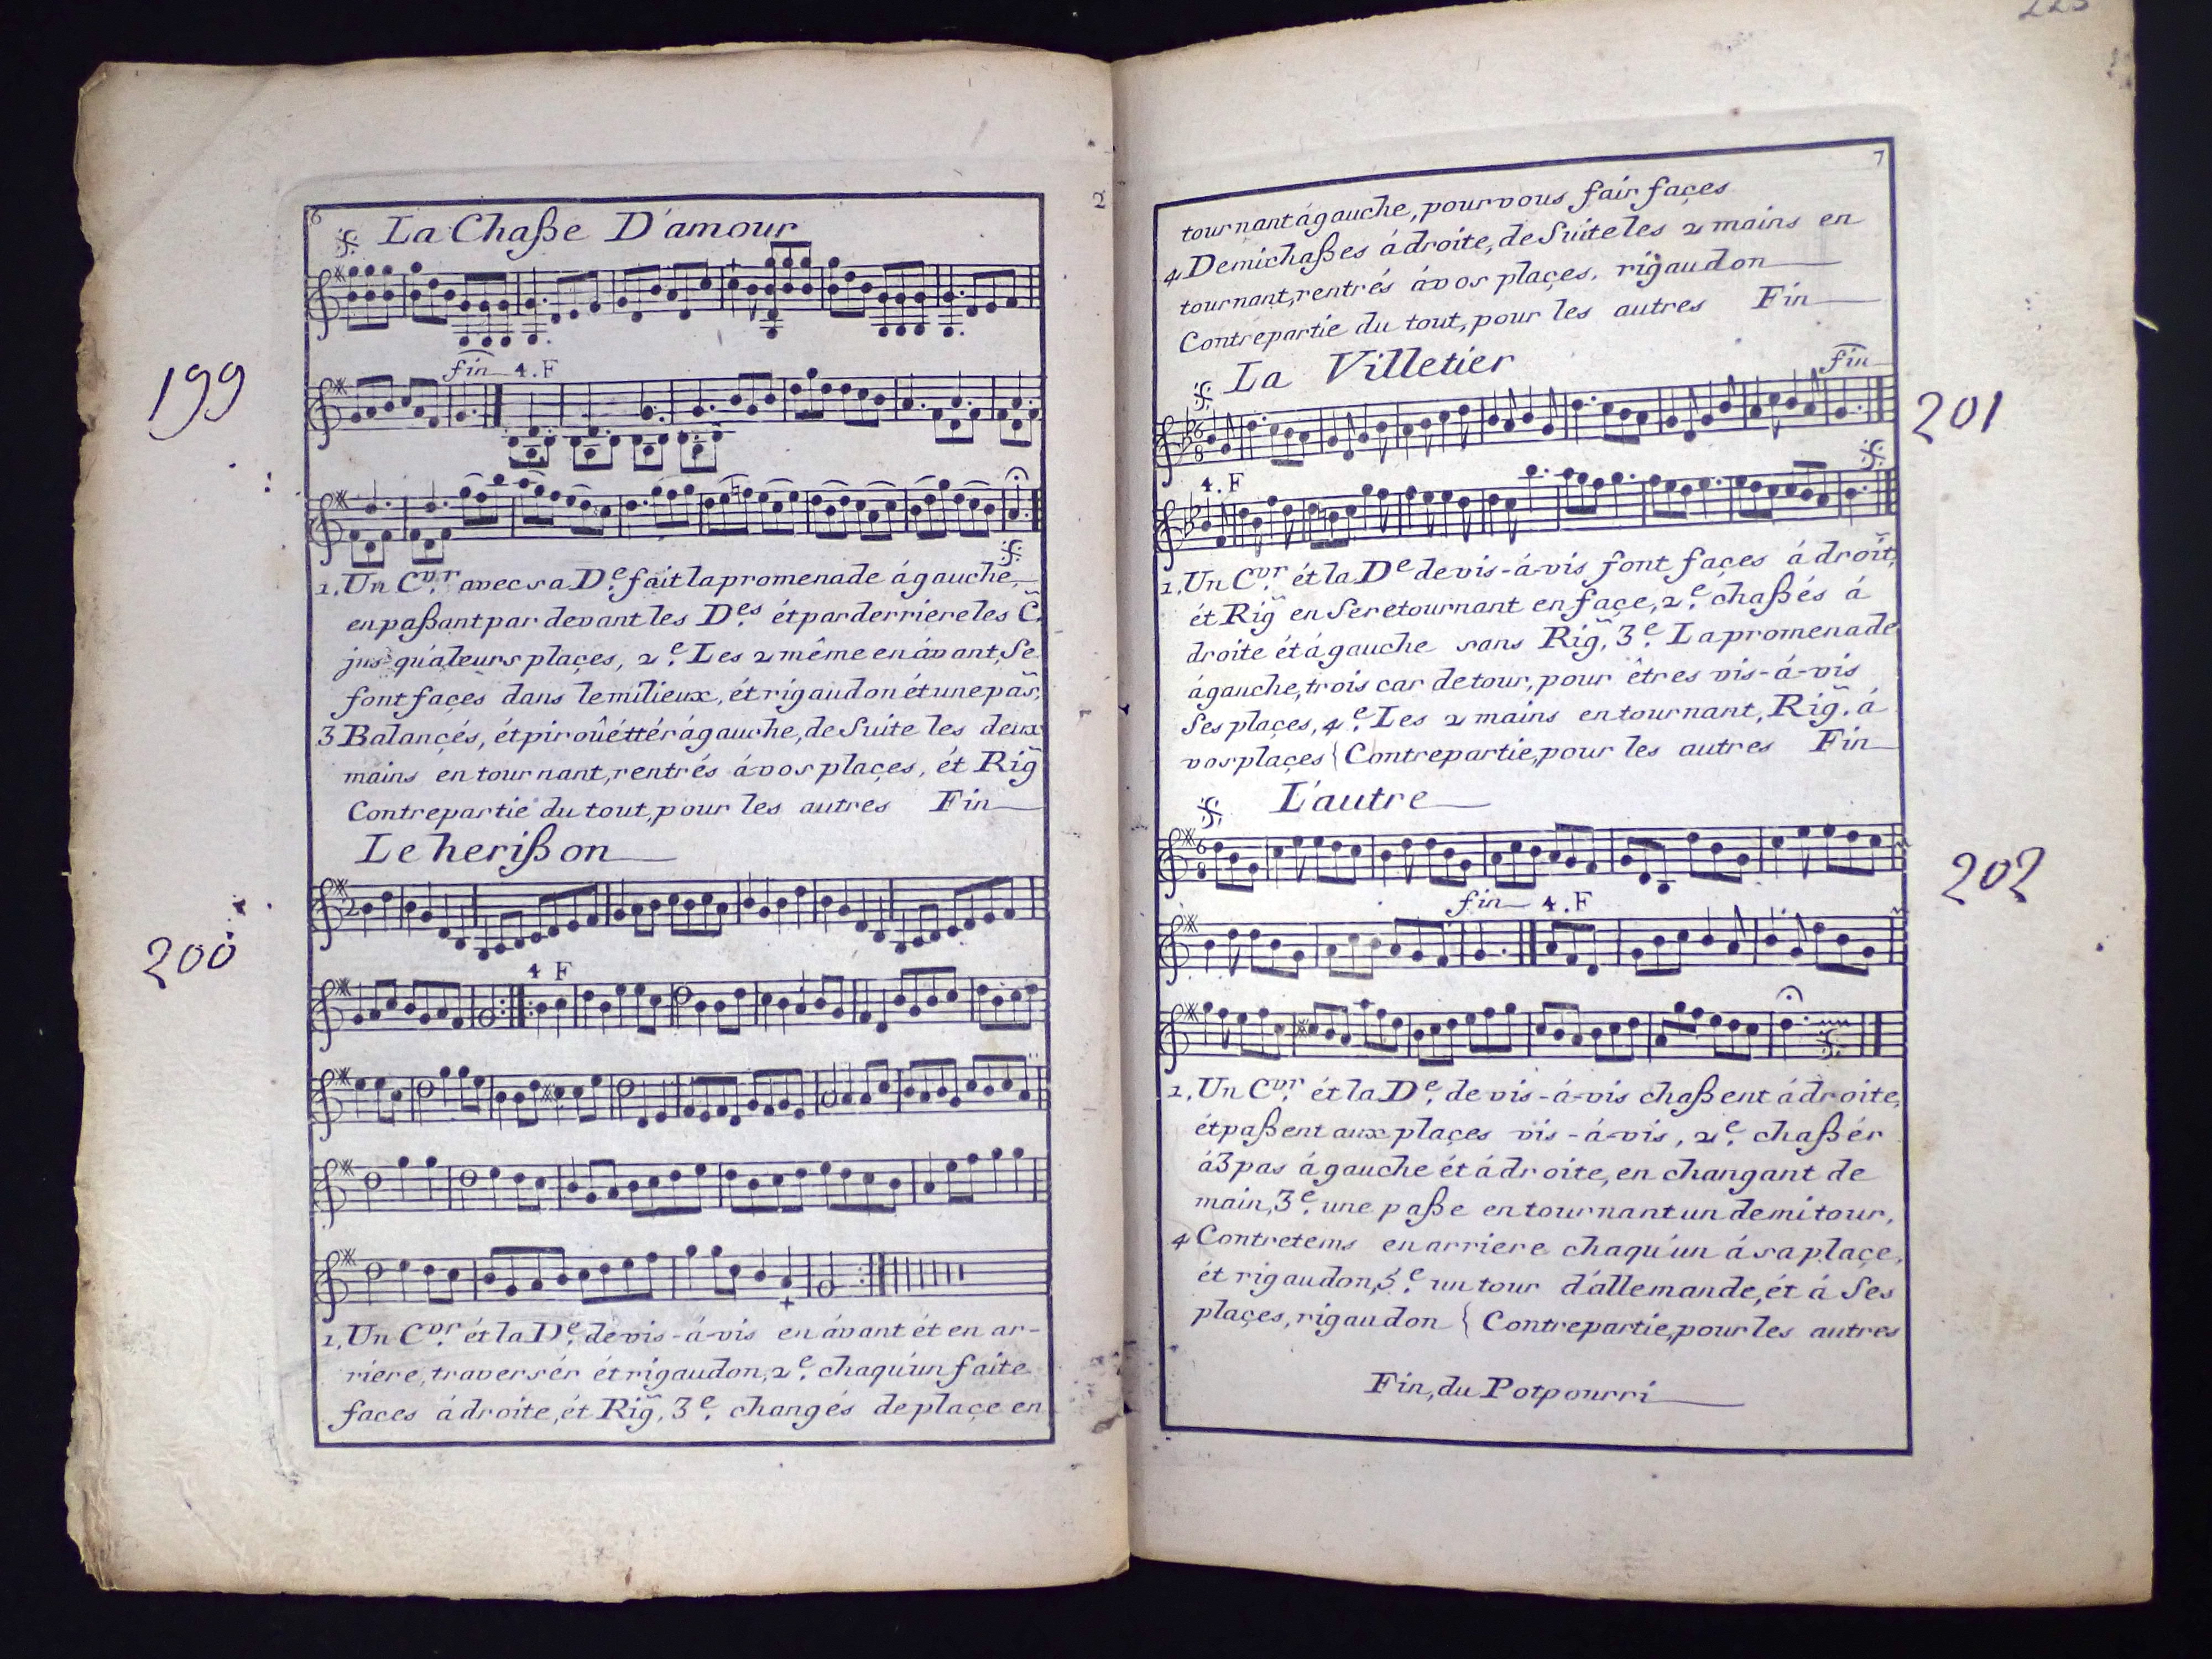 6
2
La Chaße D'amour
fin 4.F
199
1, Un C.vr avec sa D.e fait la promenade á gauche,
en paßant par devant les D.es ét par derriere les C̃.
jus qu'a leurs plaçes, 2.e Les 2 même en ávant, Se
font façes dans le milieux, ét rigaudon ét une pas̃,
3 Balancés, ét piroûéttér á gauche, de Suite les deux
mains en tournant, rentrés á vos plaçes, ét Rig̃
Contrepartie du tout, pour les autres Fin
Le herißon
200
4 F
1, Un C.vr ét la D.e de vis-á-vis en ávant ét en ar-
riere, traversér ét rigaudon, 2.e chaqu'un faite
faces á droite, ét Rig̃, 3.e changés de plaçe en
7
tournant á gauche, pour vous fair façes
4, Demichaßes á droite, de Suite les 2 mains en
tournant, rentrés á vos plaçes, rigaudon
Contrepartie du tout, pour les autres Fin
La Villetier
fin
201
4.F
1, Un C.vr ét la De de vis-á-vis font façes á droit,
ét Rig̃ en Se retournant en façe, 2.e chaßés á
droite ét á gauche sans Rig̃, 3.e La promenade
á gauche, trois car de tour, pour êtres vis-á-vis
Ses plaçes, 4.e Les 2 mains en tournant, Rig̃, á
vos plaçes { Contrepartie, pour les autres Fin
L'autre
202
fin 4.F
1, Un C.vr ét la D.e de vis-á-vis chaßent á droite,
ét paßent aux plaçes vis-á-vis, 2.e chaßér
á 3 pas á gauche ét á droite, en changant de
main, 3.e une paße en tournant un demi tour,
4 Contretems en arriere chaqu'un á sa plaçe,
ét rigaudon, 5.e un tour d'allemande, ét á Ses
plaçes, rigaudon { Contrepartie, pour les autres
Fin, du Potpourri